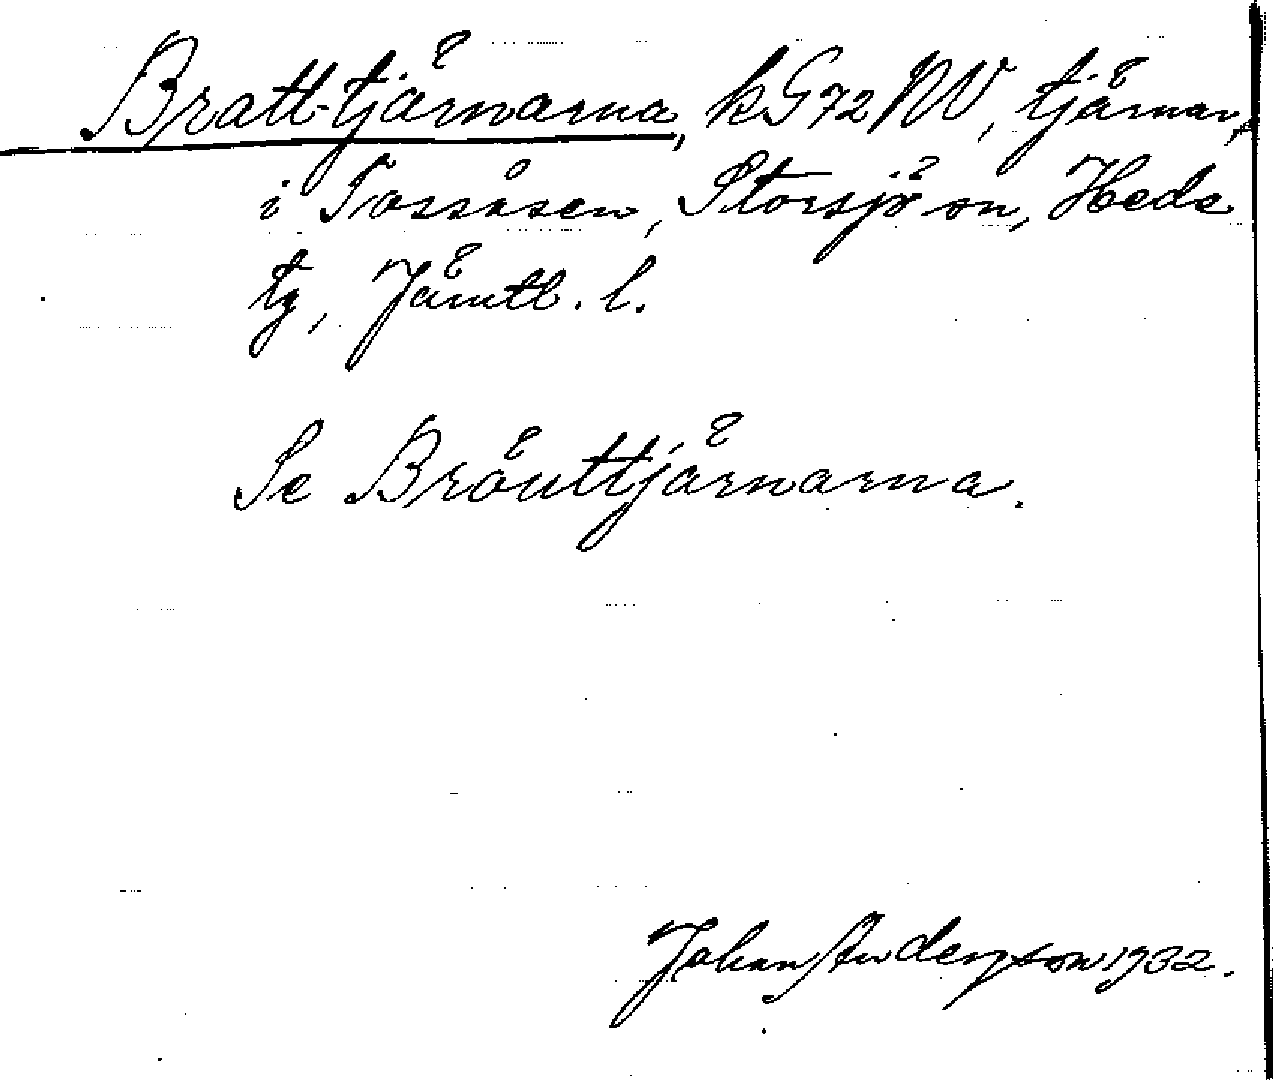 Bratt-tjärnarna, kG72NV, tjärnar,
i Tossåsen, Storsjö sn, Hede
tg, Jämtl. l.
Se Bräuttjärnarna.
Johan Anderzson 1932.